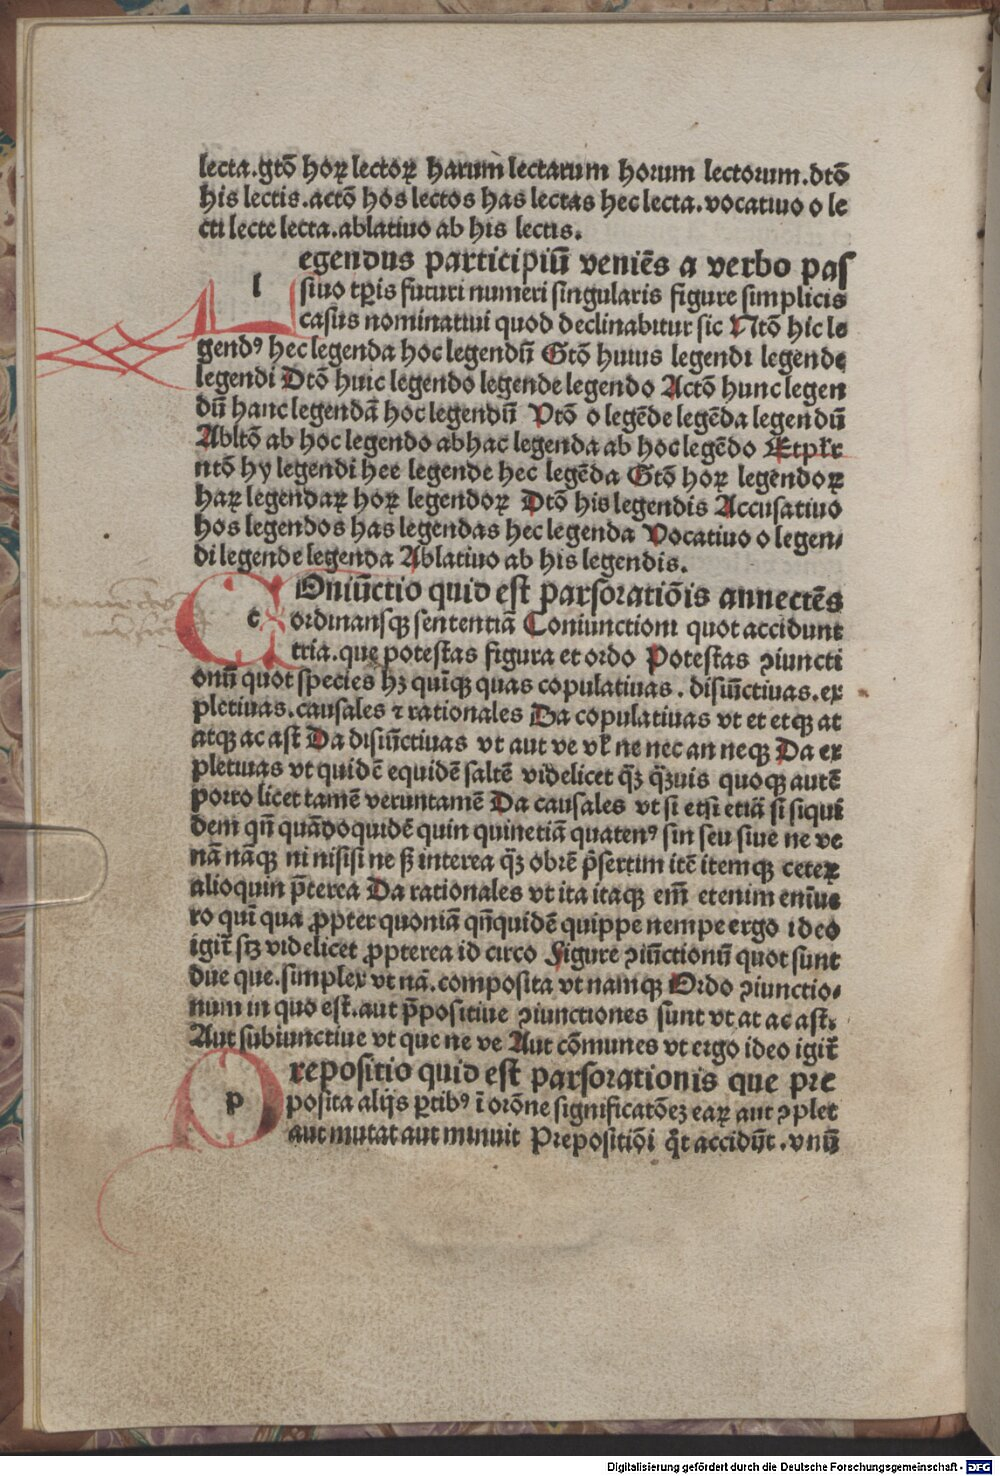 lecta.gtō hoꝝ lectoꝝ harum lectarum horum lectorum.dtō
his lectis.actō hos lectos has lectas hec lecta.vocatiuo o le
cti lecte lecta.ablatiuo ab his lectis.
egendus participiū veniēs a verbo pas
l siuo tꝑis futuri numeri singularis figure simplicis
casus nominatiui quod declinabitur sic Ntō hic le
gendꝰ hec legenda hoc legendū Gtō huius legendi legende
legendi Dtō huic legendo legende legendo Actō hunc legen
dū hanc legendā hoc legendū Vtō o legēde legēda legendū
Abltō ab hoc legendo ab hac legenda ab hoc legēdo Et pl̄r
ntō hy legendi hee legende hec legēda Gtō hoꝝ legendoꝝ
haꝝ legendaꝝ hoꝝ legendoꝝ Dtō his legendis Accusatiuo
hos legendos has legendas hec legenda Vocatiuo o legen/
di legende legenda Ablatiuo ab his legendis.
Oniūctio quid est parsoratiōis annectēs
c ordinansqꝫ sententiā Coniunctioni quot accidunt
tria.que potestas figura et ordo Potestas ꝯiuncti
onū quot species hꝫ quīqꝫ quas copulatiuas. disiūctiuas.ex
pletiuas.causales ⁊ rationales Da copulatiuas vt et etqꝫ at
atqꝫ ac ast Da disiūctiuas vt aut ve vl̄ ne nec an neqꝫ Da ex
pletiuas vt quidē equidē saltē videlicet qꝫ̄ qꝫ̄uis quoqꝫ autē
porro licet tamē veruntamē Da causales vt si etsi etiā si siqui
dem qn̄ quādoquidē quin quinetiā quatenꝰ sin seu siue ne ve
nā nāqꝫ ni nisi si ne sꝫ interea qꝫ̄ obrē p̄sertim itē itemqꝫ ceteꝝ
alioquin p̄terea Da rationales vt ita itaqꝫ em̄ etenim enīue
ro quī qua ꝓpter quoniā qn̄quidē quippe nempe ergo ideo
igit̄ scꝫ videlicet ꝓpterea id circo Figure ꝯiūctionū quot sunt
due que.simplex vt nā.composita vt namqꝫ Ordo ꝯiunctio/
num in quo est.aut p̄positiue ꝯiunctiones sunt vt at ac ast.
Aut subiunctiue vt que ne ve Aut cōmunes vt ergo ideo igit̄
repositio quid est parsorationis que pre
p posita alijs ꝑtibꝰ ī orōne significatōeꝫ eaꝝ aut ꝯplet
aut mutat aut minuit Prepositiōi q̄t accidūt.vnū
Digitalisierung gefördert durch die Deutsche Forschungsgemeinschaft - DFG